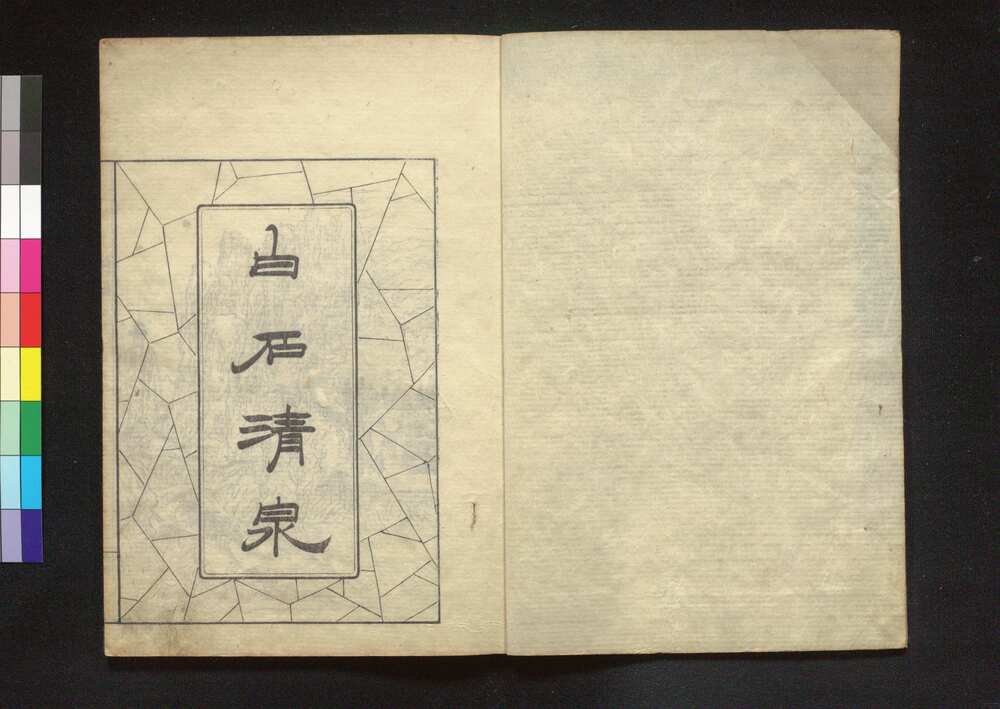 白石清泉